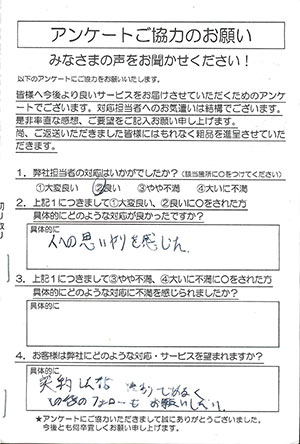 アンケートご協力のお願い
みなさまの声をお聞かせください！
以下のアンケートにご協力をお願いいたします。
皆様へ今後より良いサービスをお届けさせていただくためのアンケ
ートでございます。対応担当者へのお気遣いは結構でございます。
是非率直な感想、ご要望をご記入お願い申し上げます。
尚、ご返送いただきました皆様にはもれなく粗品を進呈させていた
だきます。
1．弊社担当者の対応はいかがでしたか？（該当箇所に〇をつけてください）
①大変良い ②良い ③やや不満 ④大いに不満
2．上記1につきまして①大変良い、②良いに〇をされた方
具体的にどのような対応が良かったですか？
具体的に
人への思いやりを感じた
3．上記1につきまして③やや不満、④大いに不満に〇をされた方
具体的にどのような対応に不満を感じられましたか？
具体的に
4．お客様は弊社にどのような対応・サービスを望まれますか？
具体的に
契約したら
の フォローも お願いしたい
★アンケートにご協力いただきまして誠にありがとうございました。
今後とも何卒宜しくお願い申し上げます。
切り取り